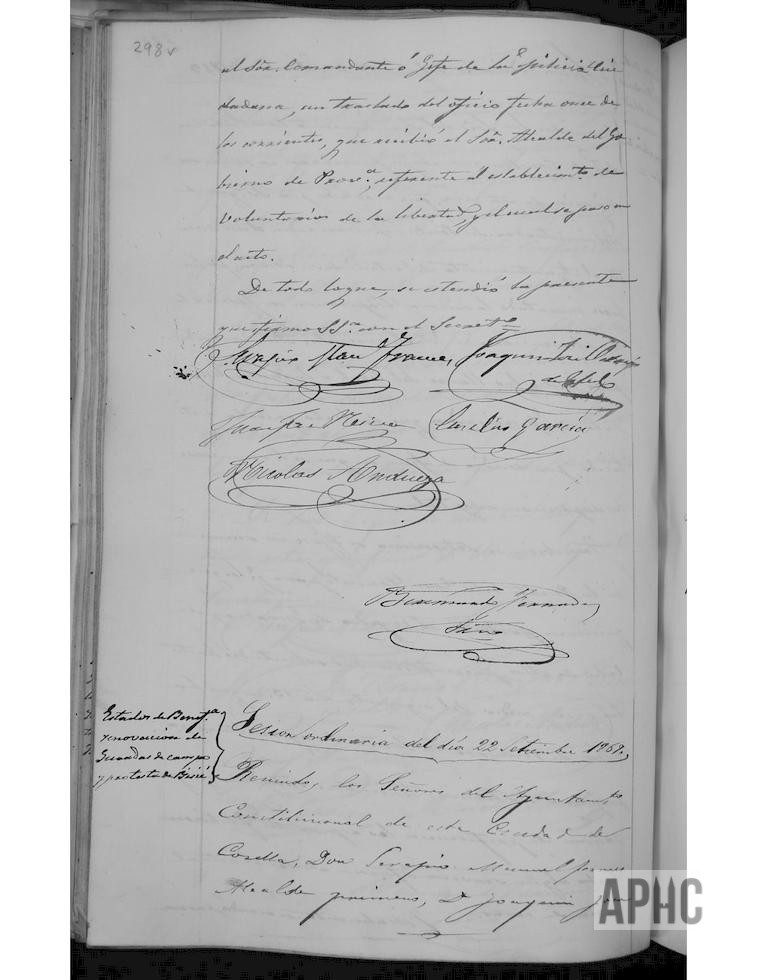 298v
al Sór. Comandante ó Gefe de la Milicia Ciu
dadana, un traslado del oficio fecha once de
los corrientes, que recibió el Sór. Alcalde del Go
bierno de Prov.ª, referente al establecimto. de
voluntarios de la libertad, y el cual se puso en
el acto.
De todo lo que, se estendió la presente
que firmo SSª. con el Secreto.
Joaquin
Juan
Garcia
Nicolas Andueza
Bermundo Fernandez
Srio
Estados de Benefª.
renovacion de
Guardas de campo
y protesta de
Sesion ordinaria del dia 22 Setiembre 1868.
Reunidos, los Señores del Ayuntamto.
Constitucional de esta Ciudad de
Corella, Don Serafin Manuel
Alcalde primero, D. Joaquin
APHC